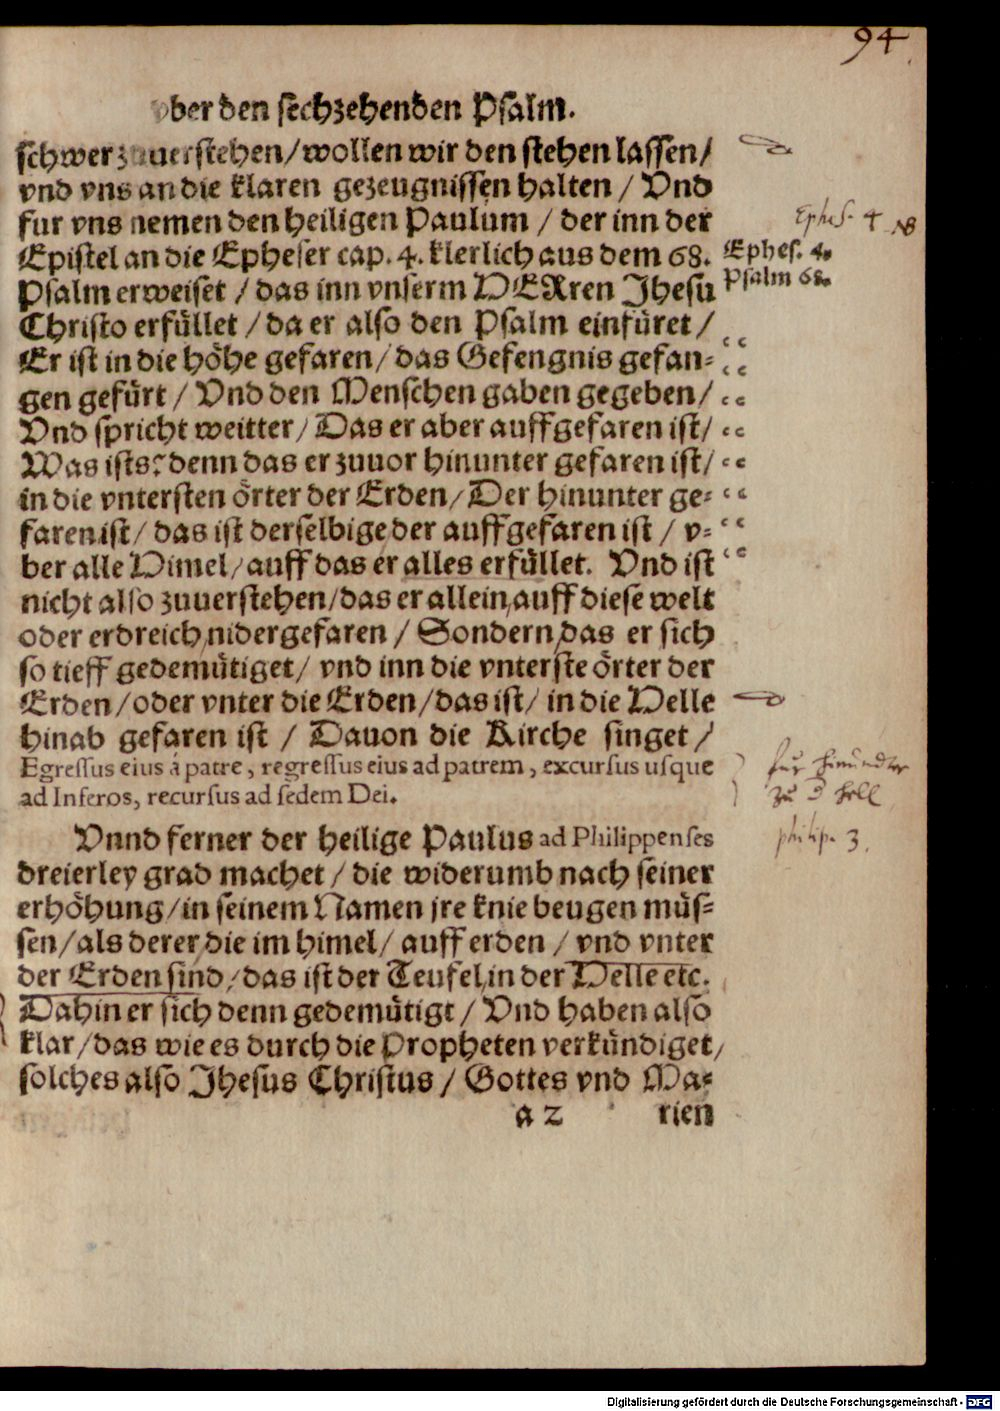 94
vber den sechzehenden Psalm.
schwer zuuerstehen/ wollen wir den stehen lassen/
vnd vns an die klaren gezeugnissen halten / Vnd
fur vns nemen den heiligen Paulum / der inn der
Ephes. 4 NB
Epistel an die Epheser cap. 4. klerlich aus dem 68.
Ephes. 4.
Psalm erweiset / das inn vnserm HERren Jhesu
Psalm 68.
Christo erfüllet / da er also den Psalm einfüret /
Er ist in die höhe gefaren/ das Gefengnis gefan-
gen gefürt / Vnd den Menschen gaben gegeben/
Vnd spricht weitter/ Das er aber auffgefaren ist/
Was ists? denn das er zuuor hinunter gefaren ist/
in die vntersten örter der Erden/ Der hinunter ge-
faren ist/ das ist derselbige der auffgefaren ist / v-
ber alle Himel/ auff das er alles erfüllet. Vnd ist
nicht also zuuerstehen/ das er allein auff diese welt
oder erdreich nidergefaren / Sondern das er sich
so tieff gedemütiget/ vnd inn die vnterste örter der
Erden/ oder vnter die Erden/ das ist/ in die Helle
hinab gefaren ist / Dauon die Kirche singet /
Egressus eius á patre, regressus eius ad patrem, excursus usque
ad Inferos, recursus ad sedem Dei.
zu d hell
philip. 3.
Vnnd ferner der heilige Paulus ad Philippenses
dreierley grad machet / die widerumb nach seiner
erhöhung/ in seinem Namen jre knie beugen müs-
sen/ als derer die im himel/ auff erden / vnd vnter
der Erden sind/ das ist der Teufel in der Helle etc.
Dahin er sich denn gedemütigt / Vnd haben also
klar/ das wie es durch die Propheten verkündiget/
solches also Jhesus Christus / Gottes vnd Ma-
a 2 rien
Digitalisierung gefördert durch die Deutsche Forschungsgemeinschaft - DFG